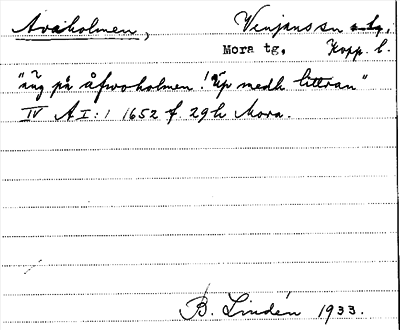 Avaholmen, Venjans sn
Mora tg, Kopp. l.
"äng på åfwoholmen! Up medh littran"
IV A I:1 1652 f. 29 h Mora.
B. Lindén 1933.